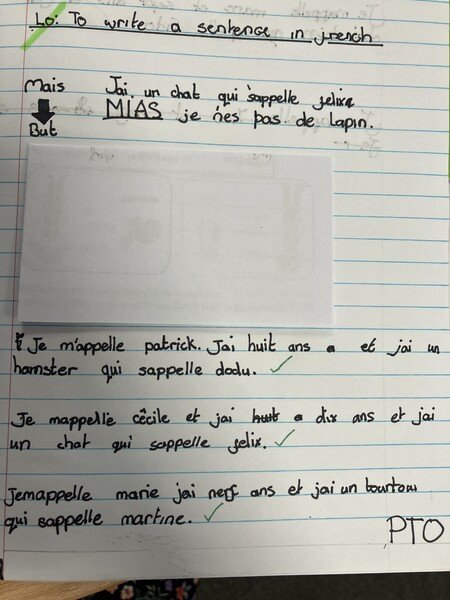 Lo: To write a sentence in french
Mais
But
Jai un chat qui s'appelle felix
MIAS je n'es pas de lapin.
Je m'appelle patrick. Jai huit ans et jai un
hamster qui sappelle dodu.
Je mappelle cécile et jai huit dix ans et jai
un chat qui sappelle felix.
Jemappelle marie jai neff ans et jai un tourtou
qui sappelle martine.
PTO